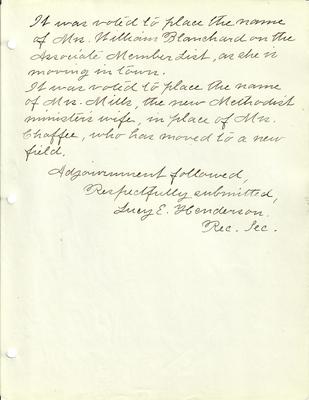 It was voted to place the name
of Mrs. William Blanchard on the
Associate Member List, as she is
moving in town.
It was voted to place the name
of Mrs. Mills, the new Methodist
minister's wife, in place of Mrs.
Chaffee, who has moved to a new
field.
Adjournment followed,
Respectfully submitted,
Lucy E. Henderson.
Rec. Sec.